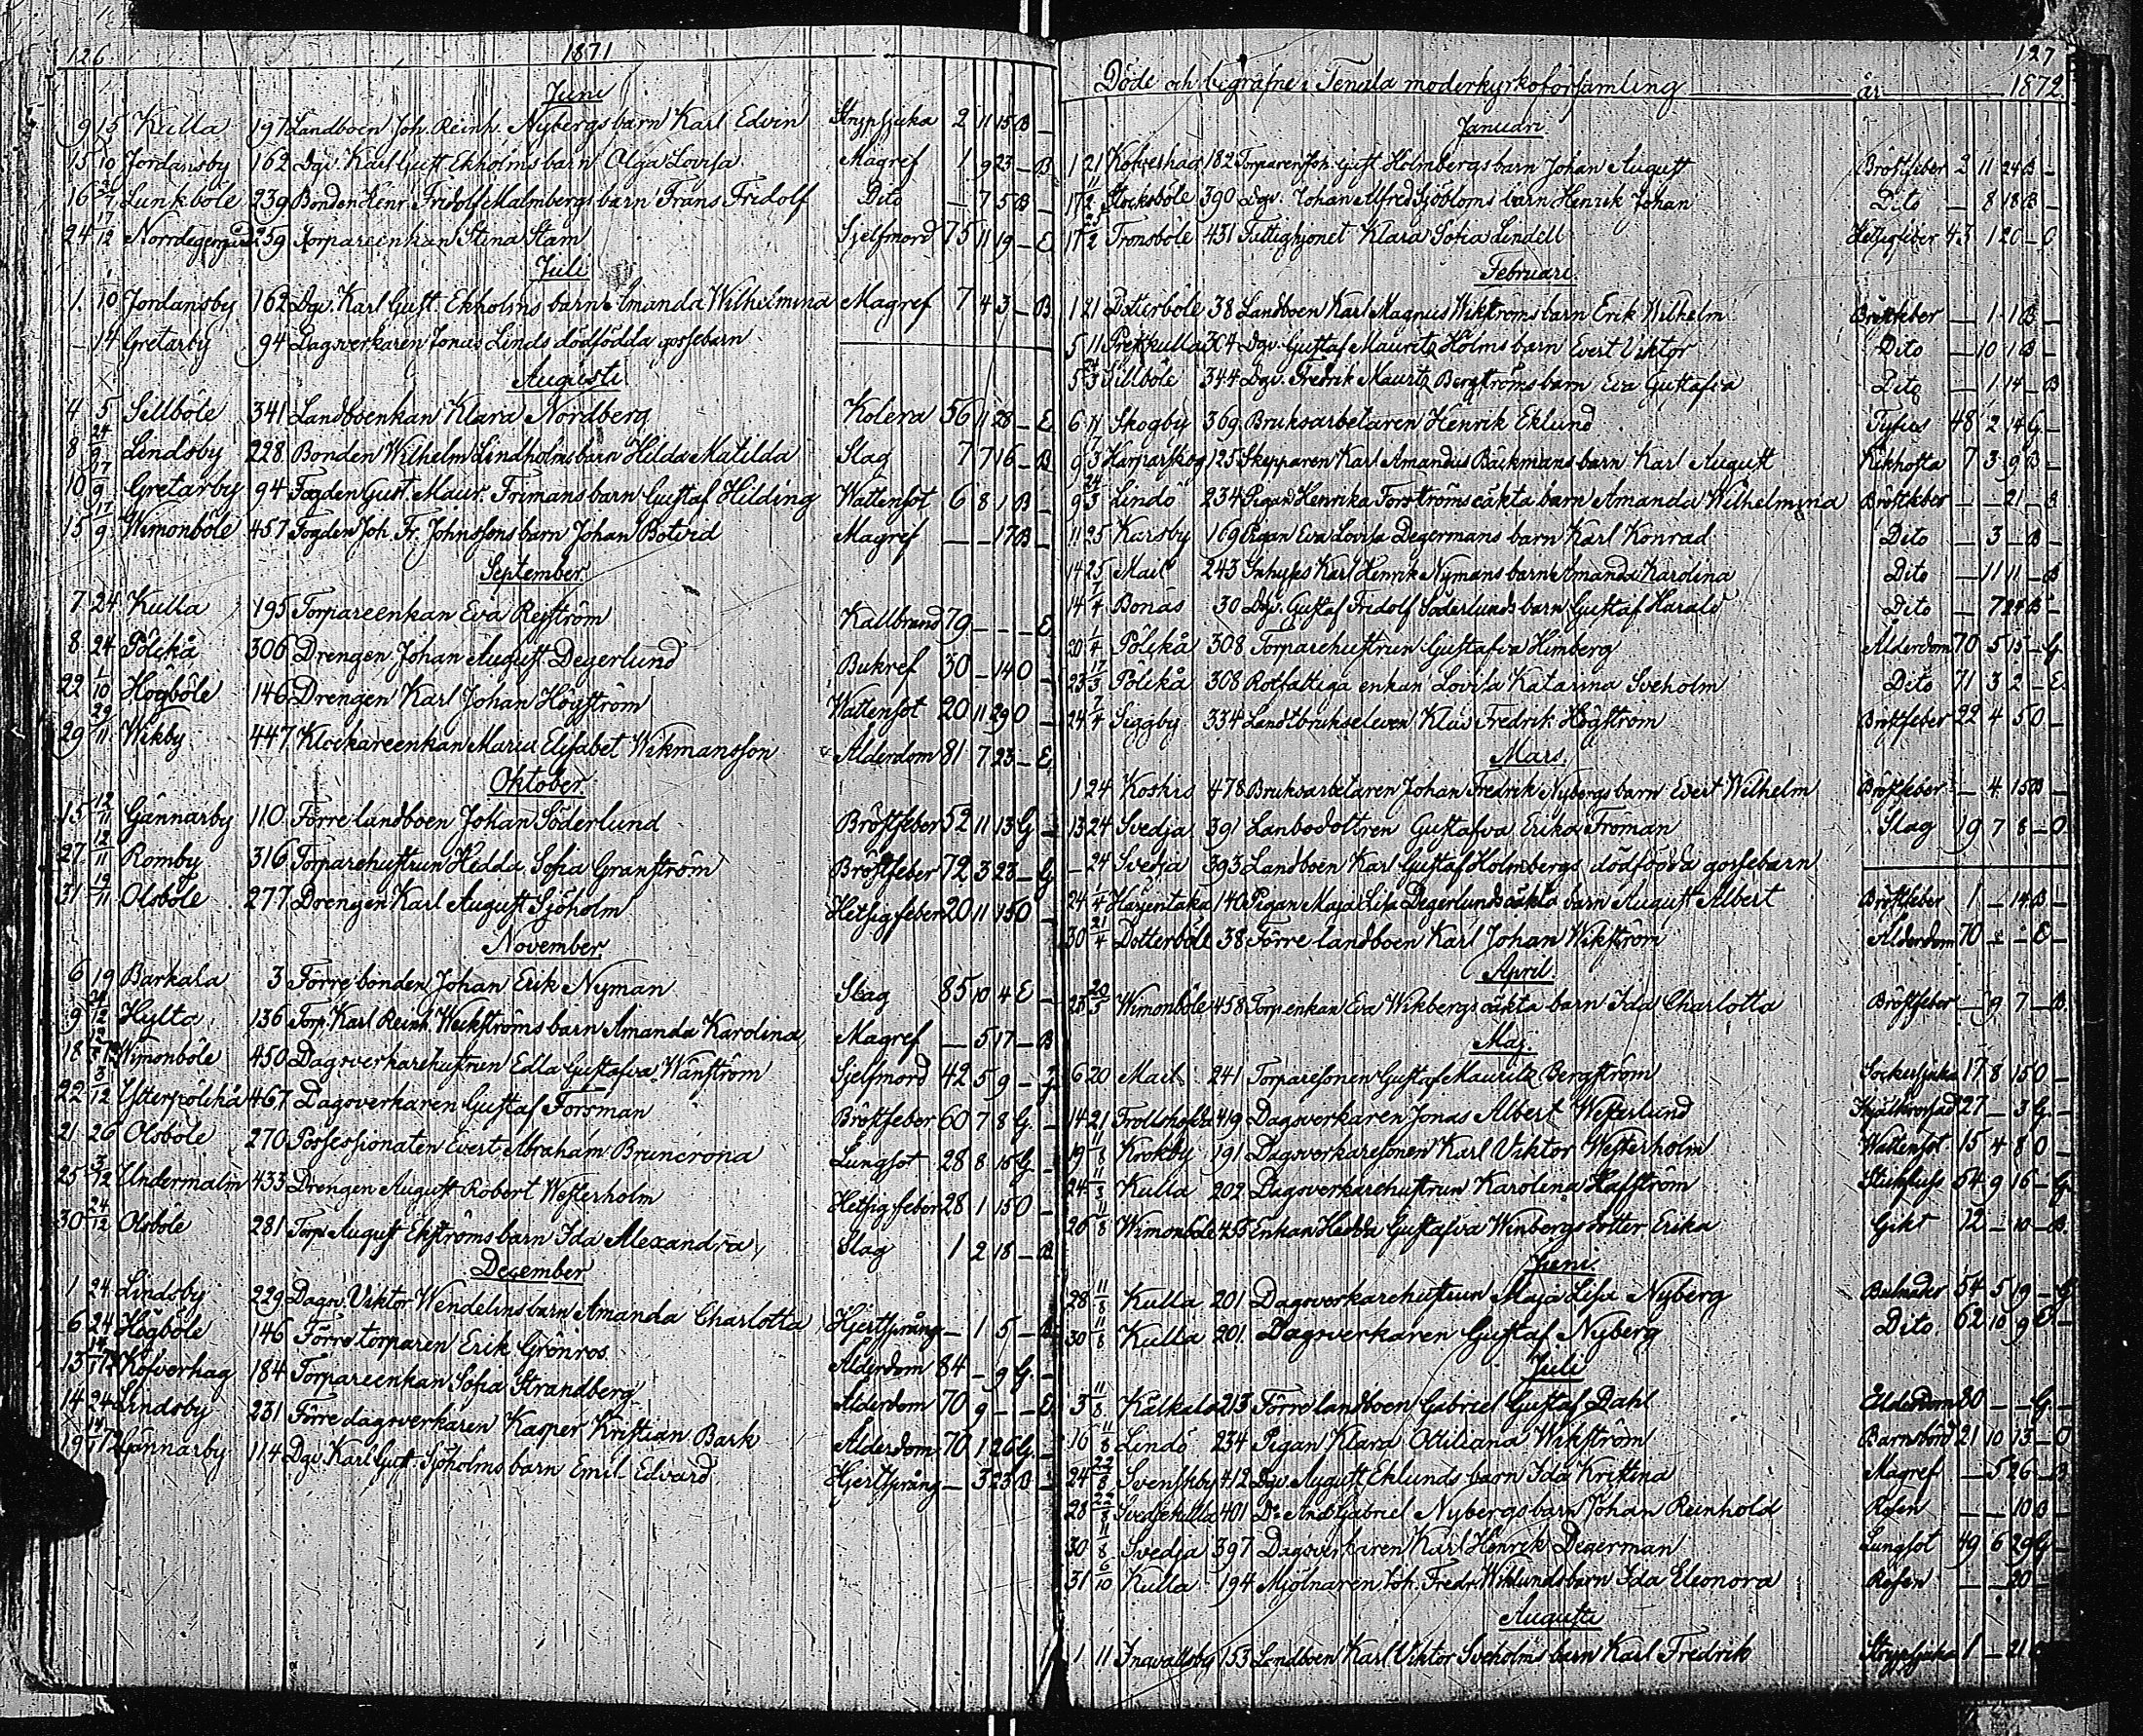 126 1871
Juni
9 15 Kulla 197 Landboen Joh. Reinh. Nybergs barn Karl Edvin Strypsjuka 2 11 15 B –
15 10 Jordansby 162 Dgv. Karl Gust Ekholms barn Olga Lovisa Magref 1 9 23 – B
16 Lunkböle 239 Bonden Henr. Fridolf Malmbergs barn Frans Fridolf Dito – 7 5 B –
24 17/12 259 Torpareenkan Stina Stam Sjelfmord 75 11 19 – E
Juli
1. 10 Jordansby 162 Dgv. Karl Gust. Ekholms barn Amanda Wilhelmina Magref 7 4 3 – B
– 14 Gretarby 94 Dagsverkaren Jonas Linds dödfödda gossebarn
Augusti
4 5 Sillböle 341 Landboenkan Klara Nordberg Kolera 56 11 28 – E
8 24/9 Lindsby 228 Bonden Wilhelm Lindholms barn Hilda Matilda Slag 7 7 16 – B
10 17/9 Gretarby 94 Fogden Gust. Maur. Frimans barn Gustaf Hilding Wattensot 6 8 1 B –
15 17/9 Wimonböle 457 Fogden Joh. Fr. Johnssons barn Johan Botvid Magref – – 17 B –
September
7 24 Kulla 195 Torpareenkan Eva Repström Kallbrand 79 – – – E
8 24 Pölikå 306 Drengen Johan August Degerlund Bukref 30 – 14 O –
22 1/10 Högböle 146 Drengen Karl Johan Högström Wattensot 20 11 29 O –
29 29/11 Wikby 447 Klockareenkan Maria Elisabet Wikmansson Ålderdom 81 7 23 – E
Oktober
15 12/11 Gännarby 110 Förre landboen Johan Söderlund Bröstfeber 52 11 13 G –
27 12/11 Romby 316 Torparehustrun Hedda Sofia Granström Bröstfeber 72 3 23 – G
31 19/11 Olsböle 277 Drengen Karl August Sjöholm Hetsig feber 20 11 15 O –
November
6 19 Barkala 3 Förre bonden Johan Erik Nyman Slag 85 10 4 E –
9 24/12 Hylta 136 Torp. Karl Reinh. Weckströms barn Amanda Karolina Magref – 5 17 – B
18 Wimonböle 450 Dagsverkarehustrun Edla Gustafva Wänström Sjelfmord 42 5 9 – G
22 3/12 Ytterpölikå 467 Dagsverkaren Gustaf Forsman Bröstfeber 60 7 8 G –
21 26 Olsböle 270 Possessionaten Evert Abraham Bruncrona Lungsot 28 8 15 G –
25 3/12 Undermalm 433 Drengen August Robert Westerholm Hetsig feber 28 1 15 O –
30 24/12 Olsböle 281 Torp August Ekströms barn Ida Alexandra Slag 1 2 18 – B
December
1 24 Lindsby 229 Dagsv. Viktor Wendelins barn Amanda Charlotta Hjertsprång – 1 5 – B
6 24 Högböle 146 Förre torparen Erik Grönros Ålderdom 84 – 9 G –
13 14/1 72 Kofverhag 184 Torpareenkan Sofia Strandberg Ålderdom 70 9 – – E
14 24 Lindsby 231 Förre dagsverkaren Kasper Kristian Bark Ålderdom 70 1 26 G –
19 14/1 72 Gännarby 114 Dgv. Karl Gust Sjöholms barn Emil Edvard Hjertsprång – 3 23 B –
127
Döde och begrafne i Tenala moderkyrkoförsamling år 1872
Januari
1 21 Kofverhag 182 Torparen Joh. Gust Holmbergs barn Johan August Bröstfeber 2 11 24 B –
17 11/2 Stocksböle 390 Dgv. Johan Alfred Sjöbloms barn Henrik Johan Dito – 8 18 B –
17 Tronsböle 431 Fattighjonet Klara Sofia Lindell Hetsigfeber 43 1 20 – O
Februari
1 21 Dotterböle 38 Landboen Karl Magnus Wikströms barn Erik Wilhelm Bröstfeber – 1 1 B –
5 11 Prestkulla 304 Dgv. Gustaf Mauritz Holms barn Evert Viktor Dito – 10 1 B –
5 24/3 Sillböle 344 Dgv. Fredrik Mauritz Bergströms barn Eva Gustafva Dito – 1 14 – B
6 11 Skogby 369 Bruksarbetaren Henrik Eklund Tyfus 48 2 14 G –
9 7/3 Harparskog 125 Skepparen Karl Amandus Bäckmans barn Karl August Kikhosta 7 3 9 B –
9 24/3 Lindö 234 Pigan Henrika Forströms oäkta barn Amanda Wilhelmina Bröstfeber – – 21 – B
11 25 Karsby 169 Pigan Eva Lovisa Degermans barn Karl Konrad Dito – 3 – B –
14 25 Mael 243 Inhyses Karl Henrik Nymans barn Amanda Karolina Dito – 11 11 – B
14 7/4 Bonäs 30 Dgv. Gustaf Fridolf Söderlunds barn Gustaf Harald Dito – 7 24 B –
20 1/4 Pölikå 308 Torparehustrun Gustafva Himberg Ålderdom 70 5 15 – G
23 17/3 Pölikå 308 Rotfattiga enkan Lovisa Katarina Sveholm Dito 71 3 2 – E
24 7/4 Siggby 334 Landtbrukseleven Klas Fredrik Högström Bröstfeber 22 4 5 O –
Mars
1 24 Koskis 478 Bruksarbetaren Johan Fredrik Nybergs barn Evert Wilhelm Bröstfeber – 4 15 B –
13 24 Svedja 391 Lanbodottren Gustafva Erika Froman Slag 19 7 8 – O
– 24 Svedja 393 Landboen Karl Gustaf Holmbergs dödfödda gossebarn
24 1/4 Härjentaka 140 Pigan Maja Lisa Degerlunds oäkta barn August Albert Bröstfeber 1 – 14 B –
30 21/4 Dotterböle 38 Förre landboen Karl Johan Wikström Ålderdom 70 – – E –
April
23 20/5 Wimonböle 458 Torpenkan Eva Wikbergs oäkta barn Ida Charlotta Bröstfeber – 9 7 – B
Maj
6 20 Mael 241 Torparesonen Gustaf Mauritz Bergström Sockersjuka 17 8 15 O –
14 21 Trollshofda 419 Dagsverkaren Jonas Albert Westerlund 27 – 3 G –
19 11/8 Krokby 191 Dagsverkaresonen Karl Viktor Westerholm Wattensot 15 4 8 O –
24 11/8 Kulla 202 Dagsverkarehustrun Karolina Hafström Stickfluss 54 9 16 – G
26 11/8 Wimonböle 455 Enkan Hedda Gustafva Wenbergs dotter Erika Gikt 12 – 10 – B
Juni
28 11/8 Kulla 201 Dagsverkarehustrun Maja Lisa Nyberg 54 5 19 – G
30 11/8 Kulla 201 Dagsverkaren Gustaf Nyberg Dito 62 10 9 E –
Juli
3 11/8 Kälkala 213 Förre landboen Gabriel Gustaf Dahl Ålderdom 80 – – G –
16 11/8 Lindö 234 Pigan Klara Ottiliana Wikström Barnsbörd 21 10 13 – O
24 22/8 Svenskby 412 Dgv. August Eklunds barn Ida Kristina Magref – 5 26 – B
28 22/8 Svedjekulla 401 Do And. Gabriel Nybergs barn Johan Reinhold Rosen – – 10 B –
30 11/8 Svedja 397 Dagsverkaren Karl Henrik Degerman Lungsot 49 6 29 G –
31 6/10 Kulla 194 Mjölnaren Joh. Fredr. Wiklunds barn Ida Eleonora Rosen – – 20 –
Augusti
1 11 Ingvallsby 153 Landboen Karl Viktor Sveholms barn Karl Fredrik Strypsjuka 1 – 21